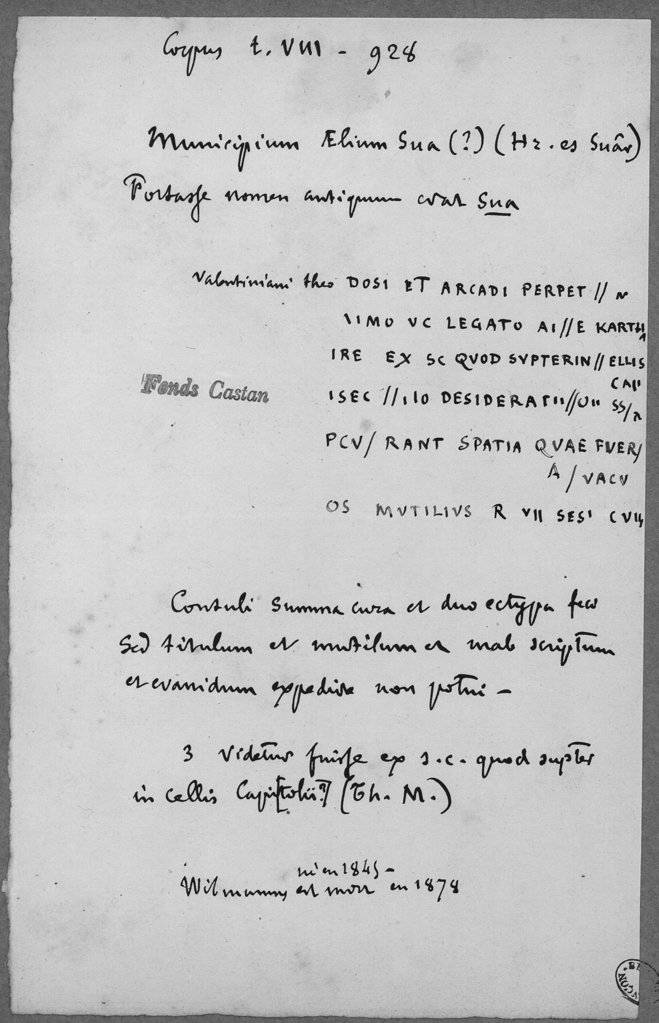 Corpus t. VIII - 928
Municipium Ælium Sua (?) (Hr. es Suâr)
Fortasse nomen antiquum erat Sua
Valentiniani theo DOSI ET ARCADI PERPET // N
\IMO VC LEGATO AI//E KARTHA
IRE EX SC QVOD SVPTERIN//ELLIS
CAI'
Fonds Castan
ISEC //,IO DESIDERAT
PCV/ RANT SPATIA QVAE FVER/
A / VACV
OS MVTILIVS R VII SESI CVII
Contuli summa cura et duo ectypa feci
Sed titulum et mutilum et male scriptum
et evanidum expedire non potui -
3 Videtur fuisse ex s.c. quod supter
in cellis Capi[tolii?] (Th. M.)
né en 1845 -
Wilmanns est mort en 1878